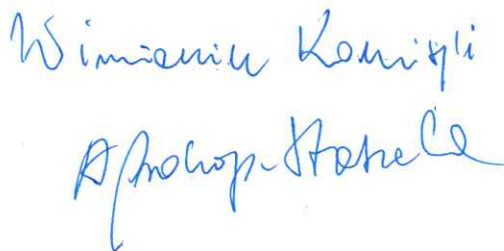 W imieniu Komisji
A. Prokop-Staszecka